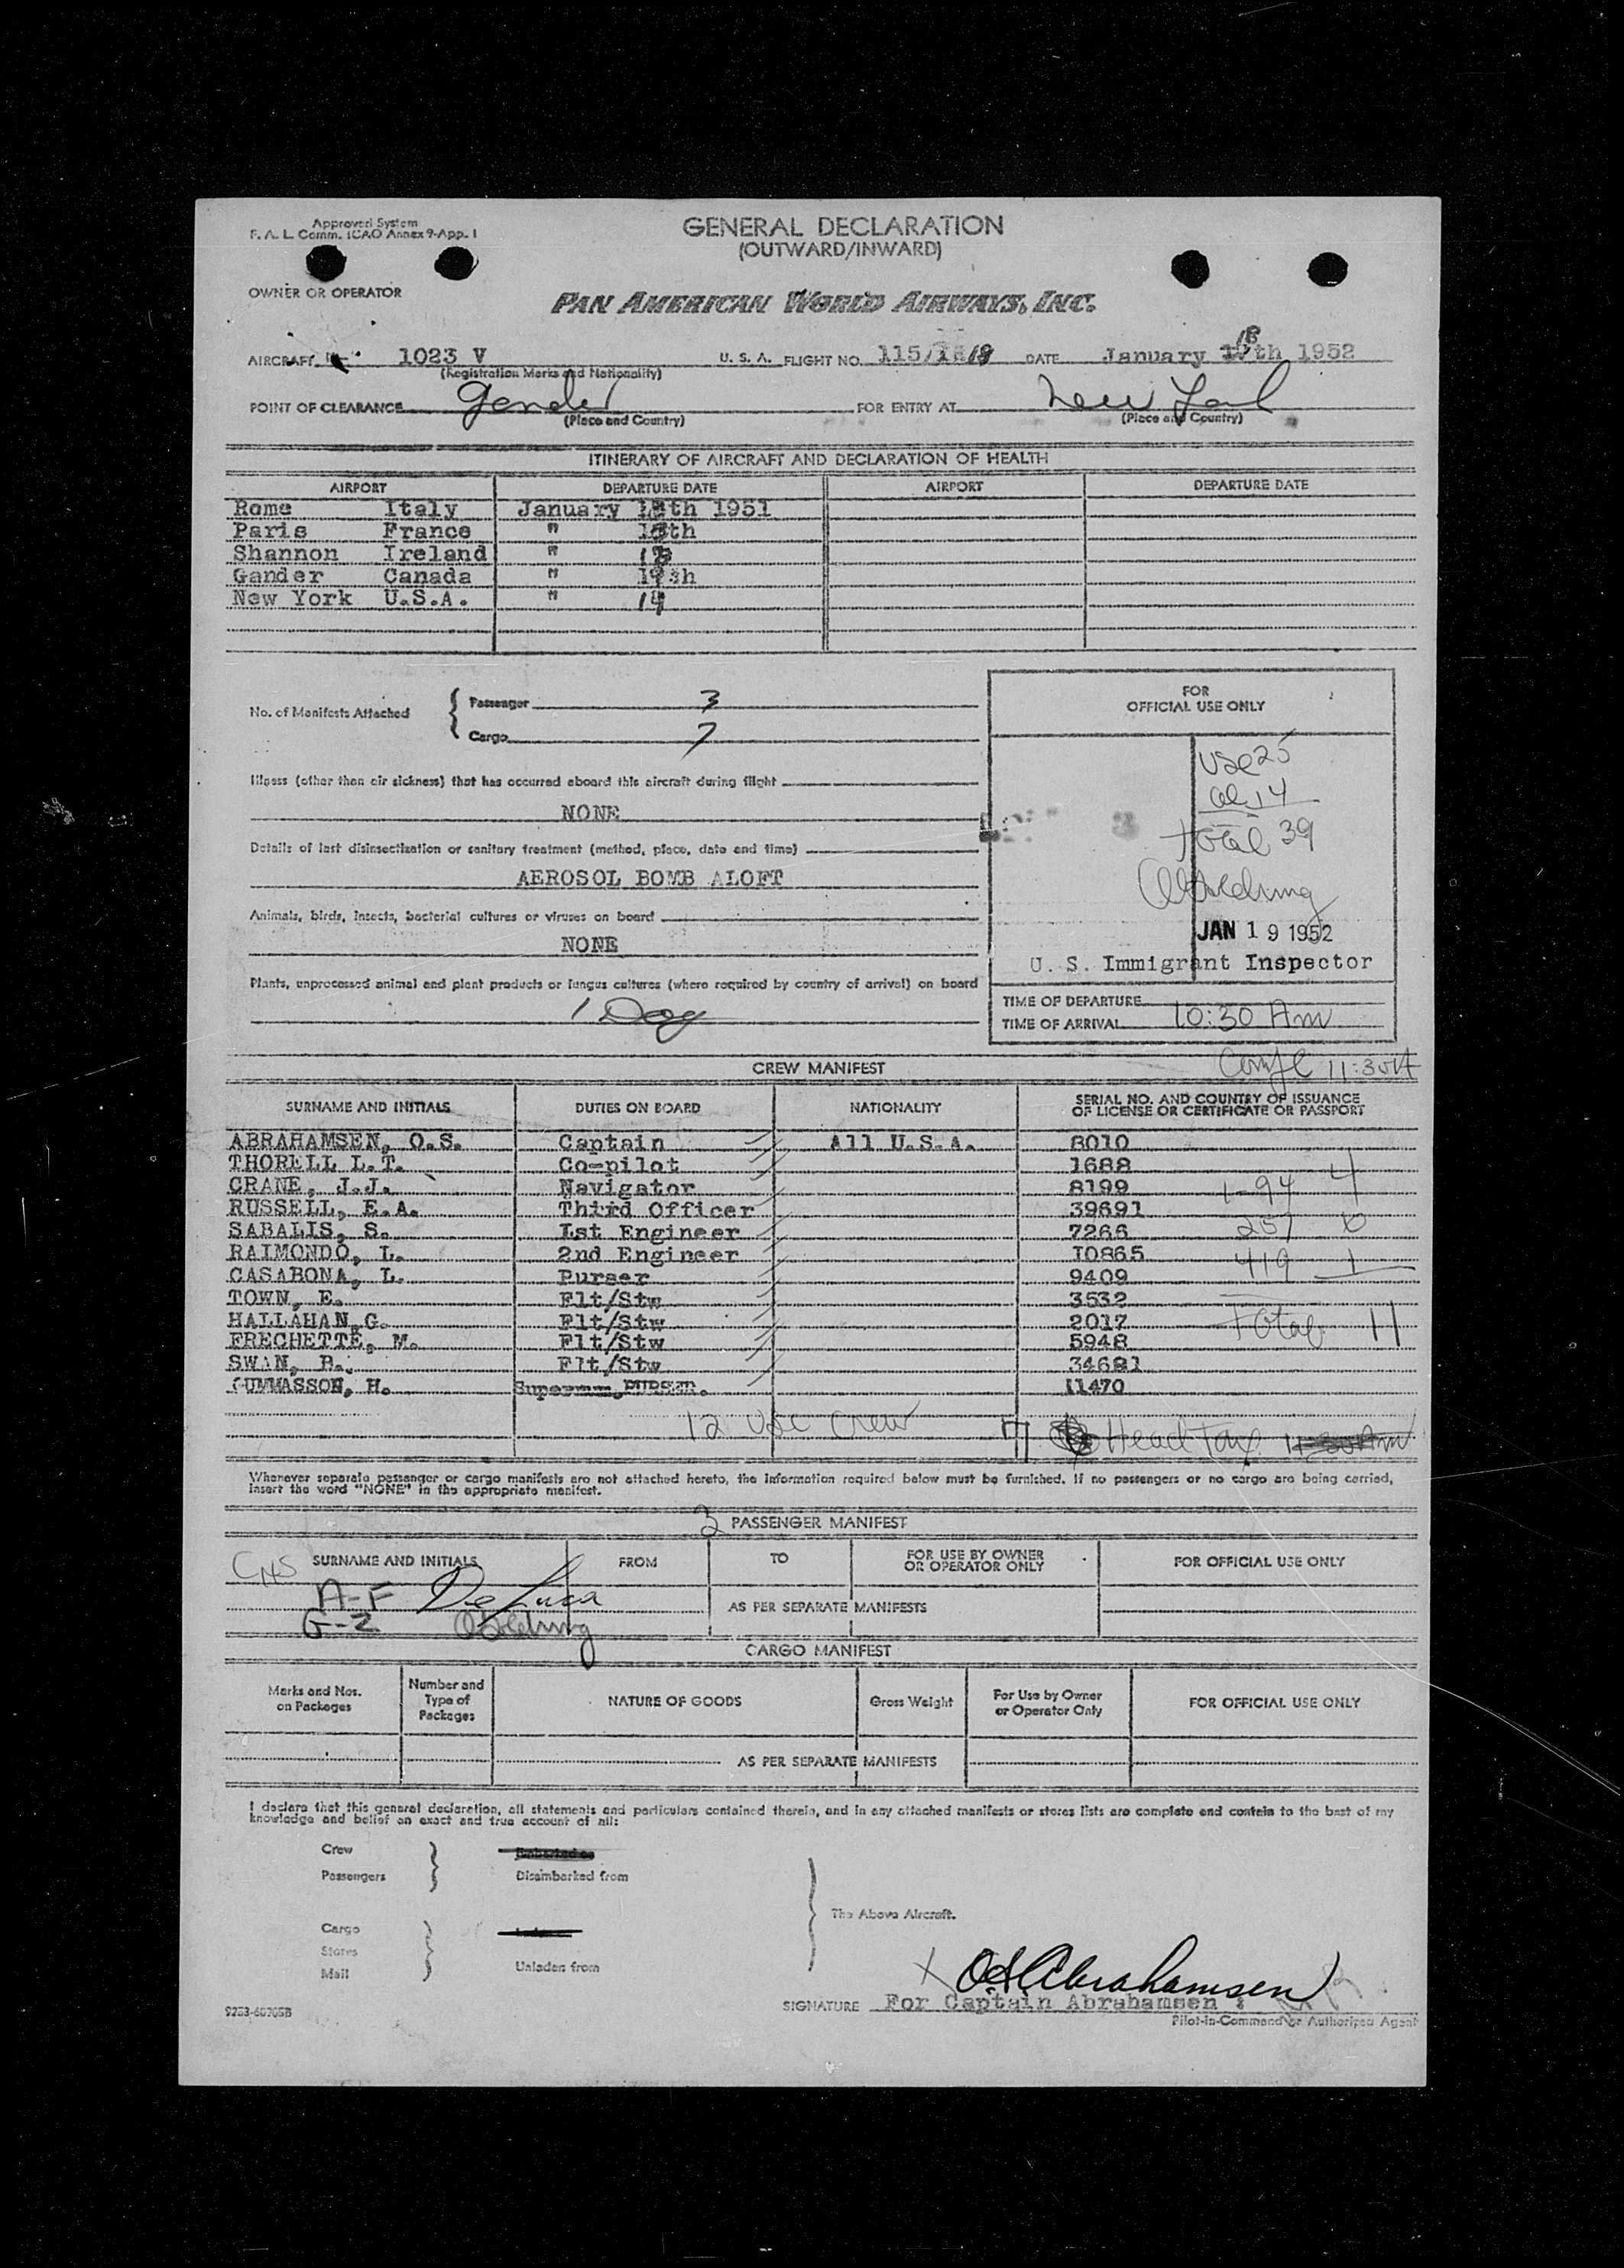 Approved System
F. A. L. Comm. ICAO Annex 9-App. 1
GENERAL DECLARATION
(OUTWARD/INWARD)
OWNER OR OPERATOR
PAN AMERICAN WORLD AIRWAYS, INC.
AIRCRAFT 1023 V U. S. A. FLIGHT NO. 115/ 18 DATE January 18 th 1952
(Registration Marks and Nationality)
POINT OF CLEARANCE Gander FOR ENTRY AT New York
(Place and Country) (Place and Country)
ITINERARY OF AIRCRAFT AND DECLARATION OF HEALTH
AIRPORT DEPARTURE DATE AIRPORT DEPARTURE DATE
Rome Italy January th 1951
Paris France " th
Shannon Ireland "
Gander Canada "
New York U.S.A. "
No. of Manifests Attached { Passenger 3
Cargo 7
Illness (other than air sickness) that has occurred aboard this aircraft during flight
NONE
Details of last disinsectization or sanitary treatment (method, place, date and time)
AEROSOL BOMB ALOFT
Animals, birds, insects, bacterial cultures or viruses on board
NONE
Plants, unprocessed animal and plant products or fungus cultures (where required by country of arrival) on board
1 Dog
FOR
OFFICIAL USE ONLY
USC 25
al 14
Total 39
JAN 19 1952
U. S. Immigrant Inspector
TIME OF DEPARTURE
TIME OF ARRIVAL 10:30 Am
Compl 11:30 A
CREW MANIFEST
SURNAME AND INITIALS DUTIES ON BOARD NATIONALITY SERIAL NO. AND COUNTRY OF ISSUANCE
OF LICENSE OR CERTIFICATE OR PASSPORT
ABRAHAMSEN, O.S. Captain All U.S.A. 8010
THORELL L.T. Co-pilot 1688
CRANE, J.J. Navigator 8199 1-94 4
RUSSELL, E.A. Third Officer 39691
SABALIS, S. 1st Engineer 7266 257 6
RAIMONDO, L. 2nd Engineer 10865
CASABONA, L. Purser 9409 419 1
TOWN, E. Flt/Stw 3532
HALLAHAN, G. Flt/Stw 2017 Total 11
FRECHETTE, M. Flt/Stw 5948
SWAN, B. Flt/Stw 34681
GUMMASSON, H. PURSER. 11470
12 USC Crew 7 Head Tax
Whenever separate passenger or cargo manifests are not attached hereto, the information required below must be furnished. If no passengers or no cargo are being carried,
insert the word "NONE" in the appropriate manifest.
3 PASSENGER MANIFEST
SURNAME AND INITIALS FROM TO FOR USE BY OWNER
OR OPERATOR ONLY FOR OFFICIAL USE ONLY
A-F De Luca
AS PER SEPARATE MANIFESTS
G-Z
CARGO MANIFEST
Marks and Nos.
on Packages Number and
Type of
Packages NATURE OF GOODS Gross Weight For Use by Owner
or Operator Only FOR OFFICIAL USE ONLY
AS PER SEPARATE MANIFESTS
I declare that this general declaration, all statements and particulars contained therein, and in any attached manifests or stores lists are complete and contain to the best of my
knowledge and belief an exact and true account of all:
Crew
Passengers Disembarked from
The Above Aircraft.
Cargo
Stores
Mail Unladen from
X O S Abrahamsen
SIGNATURE For Captain Abrahamsen
Pilot-in-Command or Authorized Agent